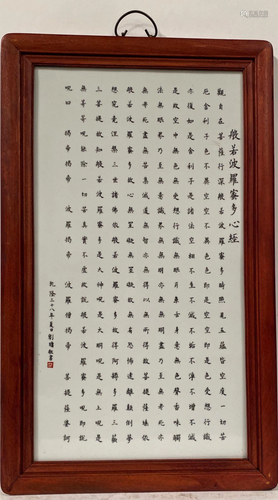 般若波羅蜜多心經
觀自在菩薩行深般若波羅蜜多時照見五蘊皆空度一切苦
厄舍利子色不異空空不異色色即是空空即是色受想行識
亦復如是舍利子是諸法空相不生不滅不垢不淨不增不減
是故空中無色無受想行識無眼耳鼻舌身意無色聲香味觸
法無眼界乃至無意識界無無明亦無無明盡乃至無老死亦
無老死盡無苦集滅道無智亦無得以無所得故菩提薩埵依
般若波羅蜜多故心無罣礙無罣礙故無有恐怖遠離顛倒夢
想究竟涅槃三世諸佛依般若波羅蜜多故得阿耨多羅三藐
三菩提故知般若波羅蜜多是大神呪是大明呪是無上呪是
無等等呪能除一切苦真實不虛故說般若波羅蜜多呪即說
呪曰 揭帝 揭帝 波羅揭帝 波羅僧揭帝 菩提薩婆訶
乾隆三十八年夏日劉墉敬書